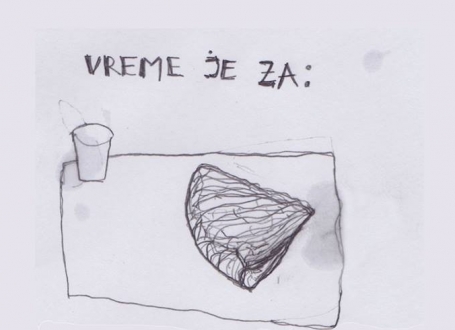 VREME JE ZA: